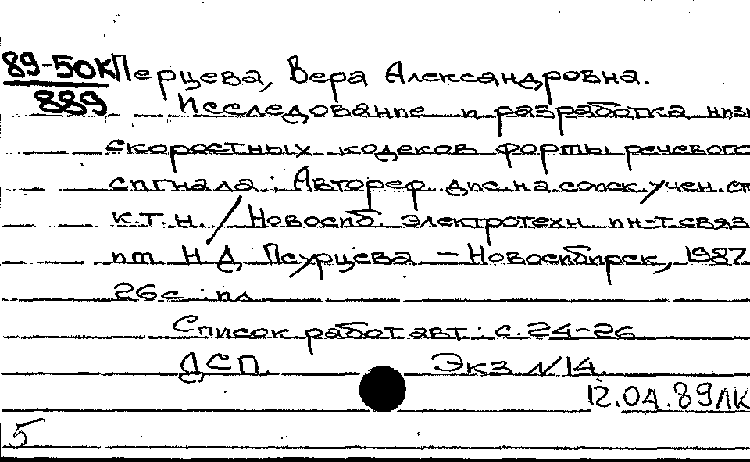 89-50К Перцева, Вера Александровна.
889 Исследование и разработка низк
скоростных кодеков формы речевого
сигнала : Автореф. дис. на соиск. учен. ст
к.т.н. / Новосиб. электротехн. ин-т связ
им. Н.Д. Псурцева – Новосибирск, 1987
26с : ил
Список работ авт : с. 24-26
ДСП. Экз N14.
12.04.89ЛК
5